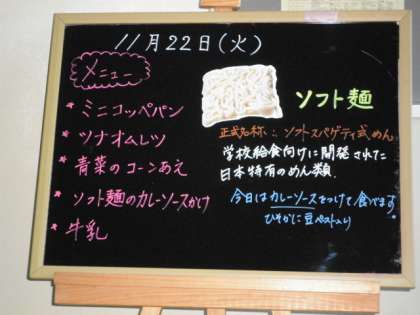 11月22日(火)
メニュー
* ミニコッペパン
* ツナオムレツ
* 青菜のコーンあえ
* ソフト麺のカレーソースかけ
* 牛乳
ソフト麺
正式名称:ソフトスパゲティ式めん
学校給食向けに開発された
日本特有のめん類.
今日はカレーソースをつけて食べます.
ひそかに豆ペースト入り